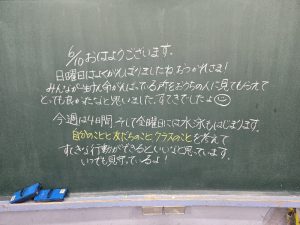 6/10 おはようございます。
日曜日にはよくがんばりましたね おつかれさま!
みんなが生けん命がんばっている所をおうちの人に見てもらえて
とっても良かったなと思いました。すてきでしたよ☺
今週は4日間 そして金曜日には水泳もはじまります。
自分のこと 友だちのこと クラスのことを考えて
すてきな行動ができるといいなと思っています。
いつでも見守っているよ!